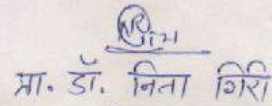 प्रा. डॉ. निता गिरी